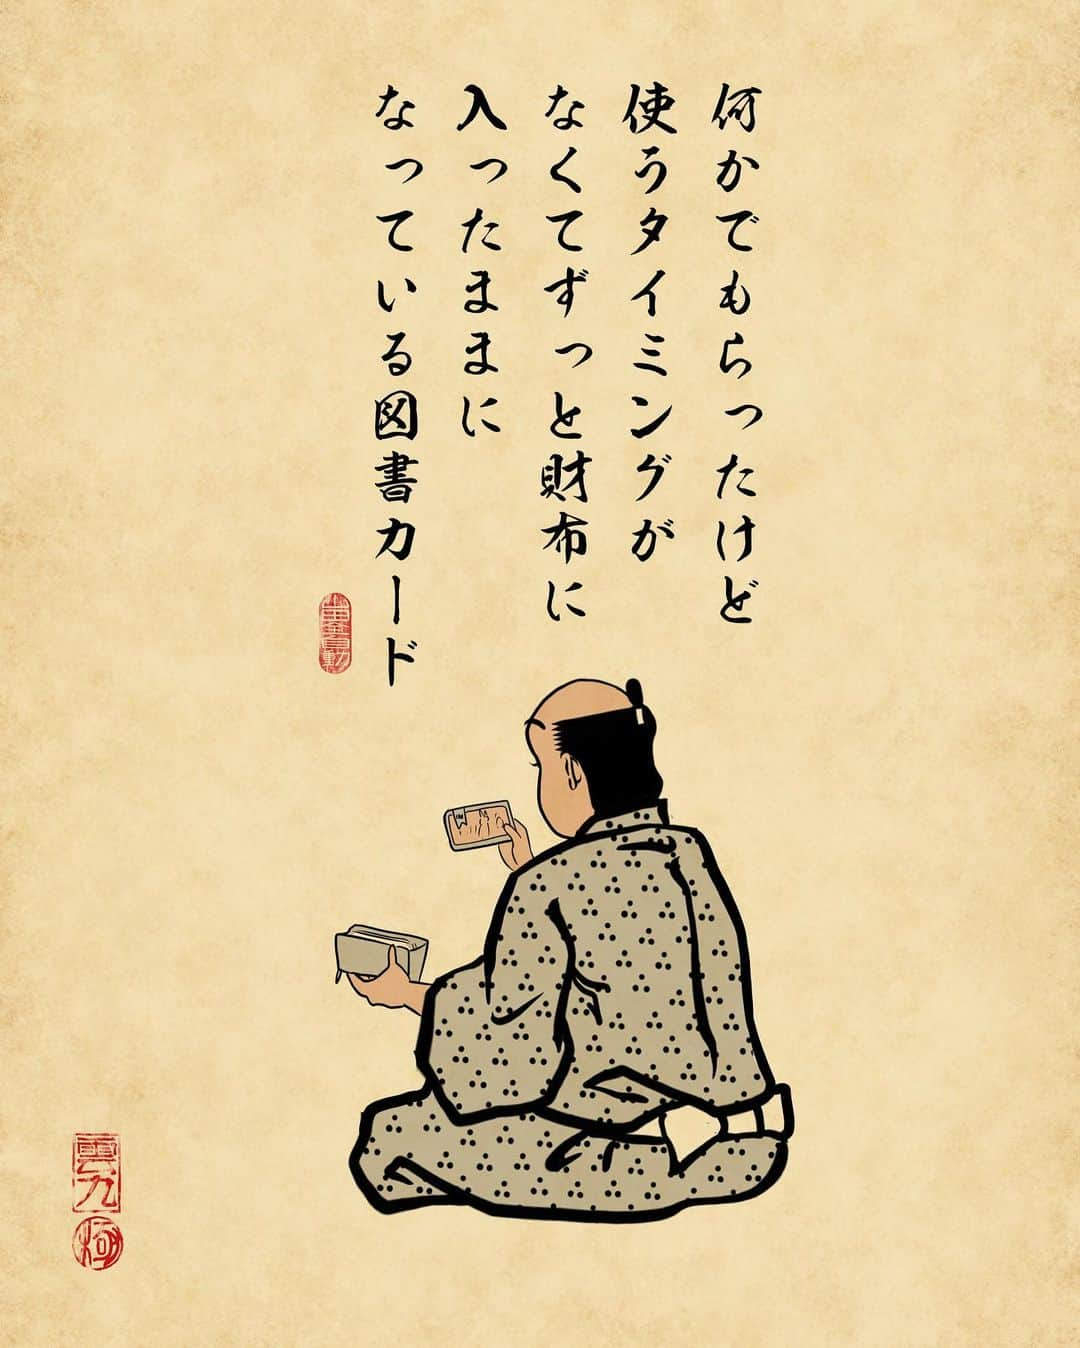 何かでもらったけど
使うタイミングが
なくてずっと財布に
入ったままに
なっている図書カード